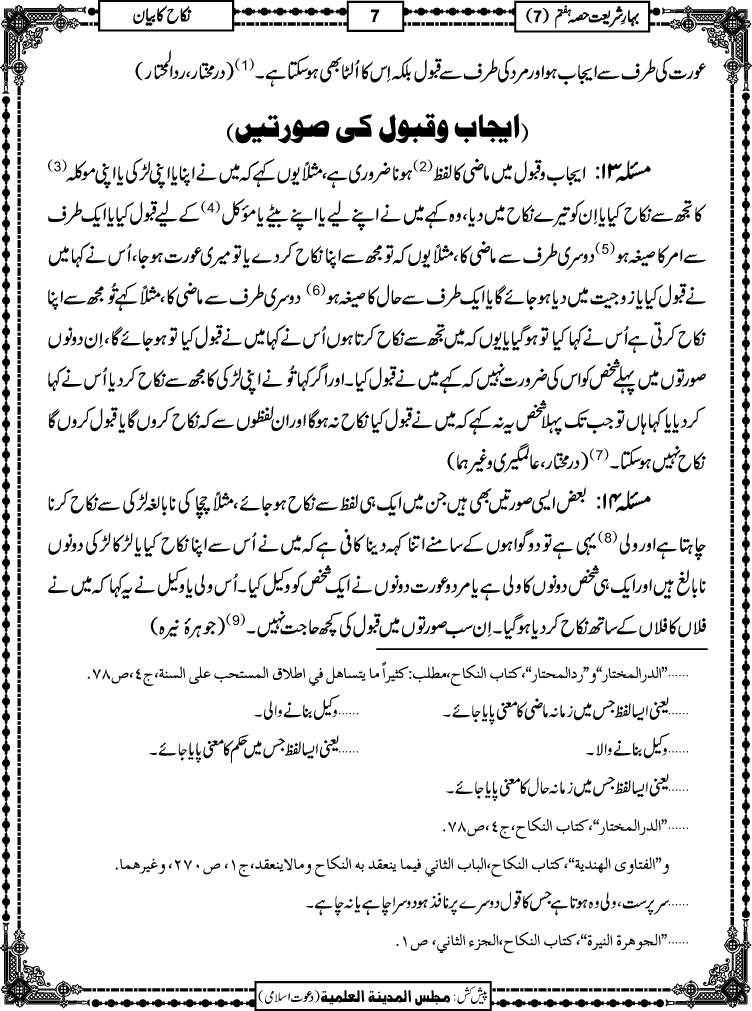 بہارِ شریعت حصہ ہفتم (7)
7
نکاح کا بیان
عورت کی طرف سے ایجاب ہو اور مرد کی طرف سے قبول بلکہ اِس کا اُلٹا بھی ہو سکتا ہے۔ (1) (درمختار، ردالمحتار)
(ایجاب و قبول کی صورتیں)
مسئلہ ۱۳: ایجاب و قبول میں ماضی کا لفظ (2) ہونا ضروری ہے، مثلاً یوں کہے کہ میں نے اپنا یا اپنی لڑکی یا اپنی موکلہ (3)
کا تجھ سے نکاح کیا یا اِن کو تیرے نکاح میں دیا، وہ کہے میں نے اپنے لیے یا اپنے بیٹے یا مؤکل (4) کے لیے قبول کیا یا ایک طرف
سے امر کا صیغہ ہو (5) دوسری طرف سے ماضی کا، مثلاً یوں کہ تو مجھ سے اپنا نکاح کر دے یا تو میری عورت ہو جا، اُس نے کہا میں
نے قبول کیا یا زوجیت میں دیا ہو جائے گا یا ایک طرف سے حال کا صیغہ ہو (6) دوسری طرف سے ماضی کا، مثلاً کہے تُو مجھ سے اپنا
نکاح کرتی ہے اُس نے کہا کیا تو ہو گیا یا یوں کہ میں تجھ سے نکاح کرتا ہوں اُس نے کہا میں نے قبول کیا تو ہو جائے گا، اِن دونوں
صورتوں میں پہلے شخص کو اس کی ضرورت نہیں کہ کہے میں نے قبول کیا۔ اور اگر کہا تُو نے اپنی لڑکی کا مجھ سے نکاح کر دیا اُس نے کہا
کر دیا یا کہا ہاں تو جب تک پہلا شخص یہ نہ کہے کہ میں نے قبول کیا نکاح نہ ہوگا اور ان لفظوں سے کہ نکاح کروں گا یا قبول کروں گا
نکاح نہیں ہو سکتا۔ (7) (درمختار، عالمگیری وغیرہما)
مسئلہ ۱۴: بعض ایسی صورتیں بھی ہیں جن میں ایک ہی لفظ سے نکاح ہو جائے، مثلاً چچا کی نابالغہ لڑکی سے نکاح کرنا
چاہتا ہے اور ولی (8) یہی ہے تو دو گواہوں کے سامنے اتنا کہہ دینا کافی ہے کہ میں نے اُس سے اپنا نکاح کیا یا لڑکا لڑکی دونوں
نابالغ ہیں اور ایک ہی شخص دونوں کا ولی ہے یا مرد و عورت دونوں نے ایک شخص کو وکیل کیا۔ اُس ولی یا وکیل نے یہ کہا کہ میں نے
فلاں کا فلاں کے ساتھ نکاح کر دیا ہو گیا۔ اِن سب صورتوں میں قبول کی کچھ حاجت نہیں۔ (9) (جوہرۂ نیرہ)
......”الدرالمختار“ و ”ردالمحتار“، کتاب النکاح، مطلب: کثیراً ما یتساهل في اطلاق المستحب علی السنة، ج٤، ص٧٨.
......یعنی ایسا لفظ جس میں زمانہ ماضی کا معنی پایا جائے۔ ......وکیل بنانے والی۔
......وکیل بنانے والا۔ ......یعنی ایسا لفظ جس میں حکم کا معنی پایا جائے۔
......یعنی ایسا لفظ جس میں زمانہ حال کا معنی پایا جائے۔
......”الدرالمختار“، کتاب النکاح، ج٤، ص٧٨.
و ”الفتاوی الهندیة“، کتاب النکاح، الباب الثاني فیما ینعقد به النکاح ومالاینعقد، ج١، ص٢٧٠، وغیرهما.
......سرپرست، ولی وہ ہوتا ہے جس کا قول دوسرے پر نافذ ہو دوسرا چاہے یا نہ چاہے۔
......”الجوهرة النیرة“، کتاب النکاح، الجزء الثاني، ص١.
پیش کش: مجلس المدینة العلمیة (دعوت اسلامی)